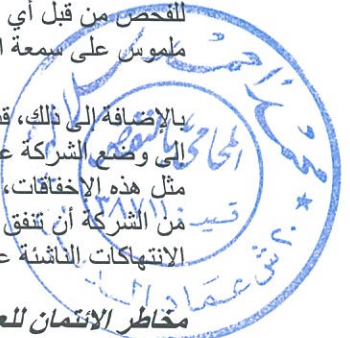 للفحص من قبل أي
ملموس على سمعة
بالإضافة إلى ذلك،
إلى وضع الشركة
مثل هذه الإخفاقات،
من الشركة أن تنفق
الانتهاكات الناشئة
مخاطر الائتمان
محمد أحمد
المحامي بالنقض
قيد
ش عماد